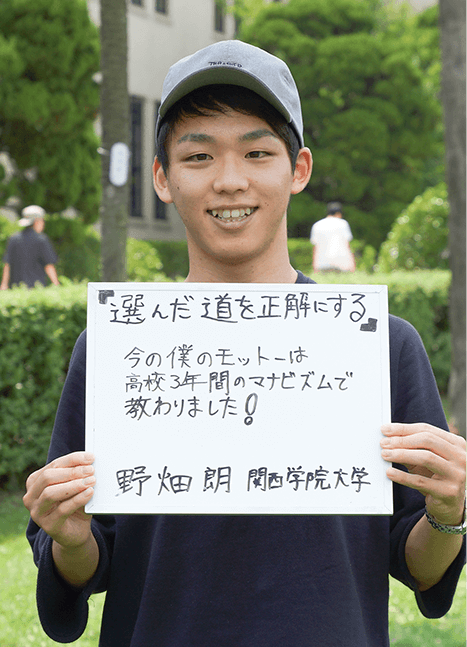 『選んだ道を正解にする』
今の僕のモットーは
高校3年間のマナビズムで
教わりました!
野畑 朗 関西学院大学